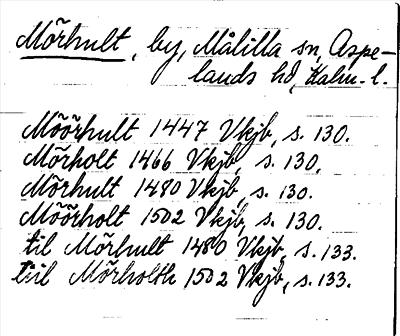 Mörhult, by, Målilla sn, Aspe-
lands hd, Kalm. l.
Möörhult 1447 Vkjb, s. 130.
Mörholt 1466 Vkjb, s. 130.
Mörhult 1480 Vkjb, s. 130.
Möörholt 1502 Vkjb, s. 130.
til Mörhult 1480 Vkjb, s. 133.
tiil Mörholth 1502 Vkjb, s. 133.